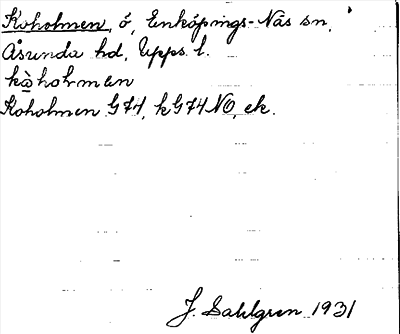 Koholmen, ö, Enköpings-Näs sn,
Åsunda hd, Upps. l.
kɷ̀holmen
Koholmen G74, kG74NO, ek.
J. Sahlgren 1931